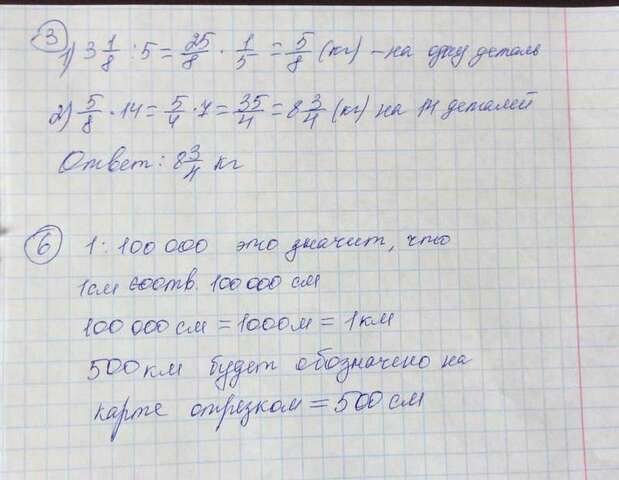 ③
1) 3 1/8 : 5 = 25/8 · 1/5 = 5/8 (кг) – на одну деталь
2) 5/8 · 14 = 5/4 · 7 = 35/4 = 8 3/4 (кг) на 14 деталей
Ответ: 8 3/4 кг
⑥ 1 : 100 000 это значит, что
1см соотв. 100 000 см
100 000 см = 1000м = 1 км
500 км будет обозначено на
карте отрезком = 500 см